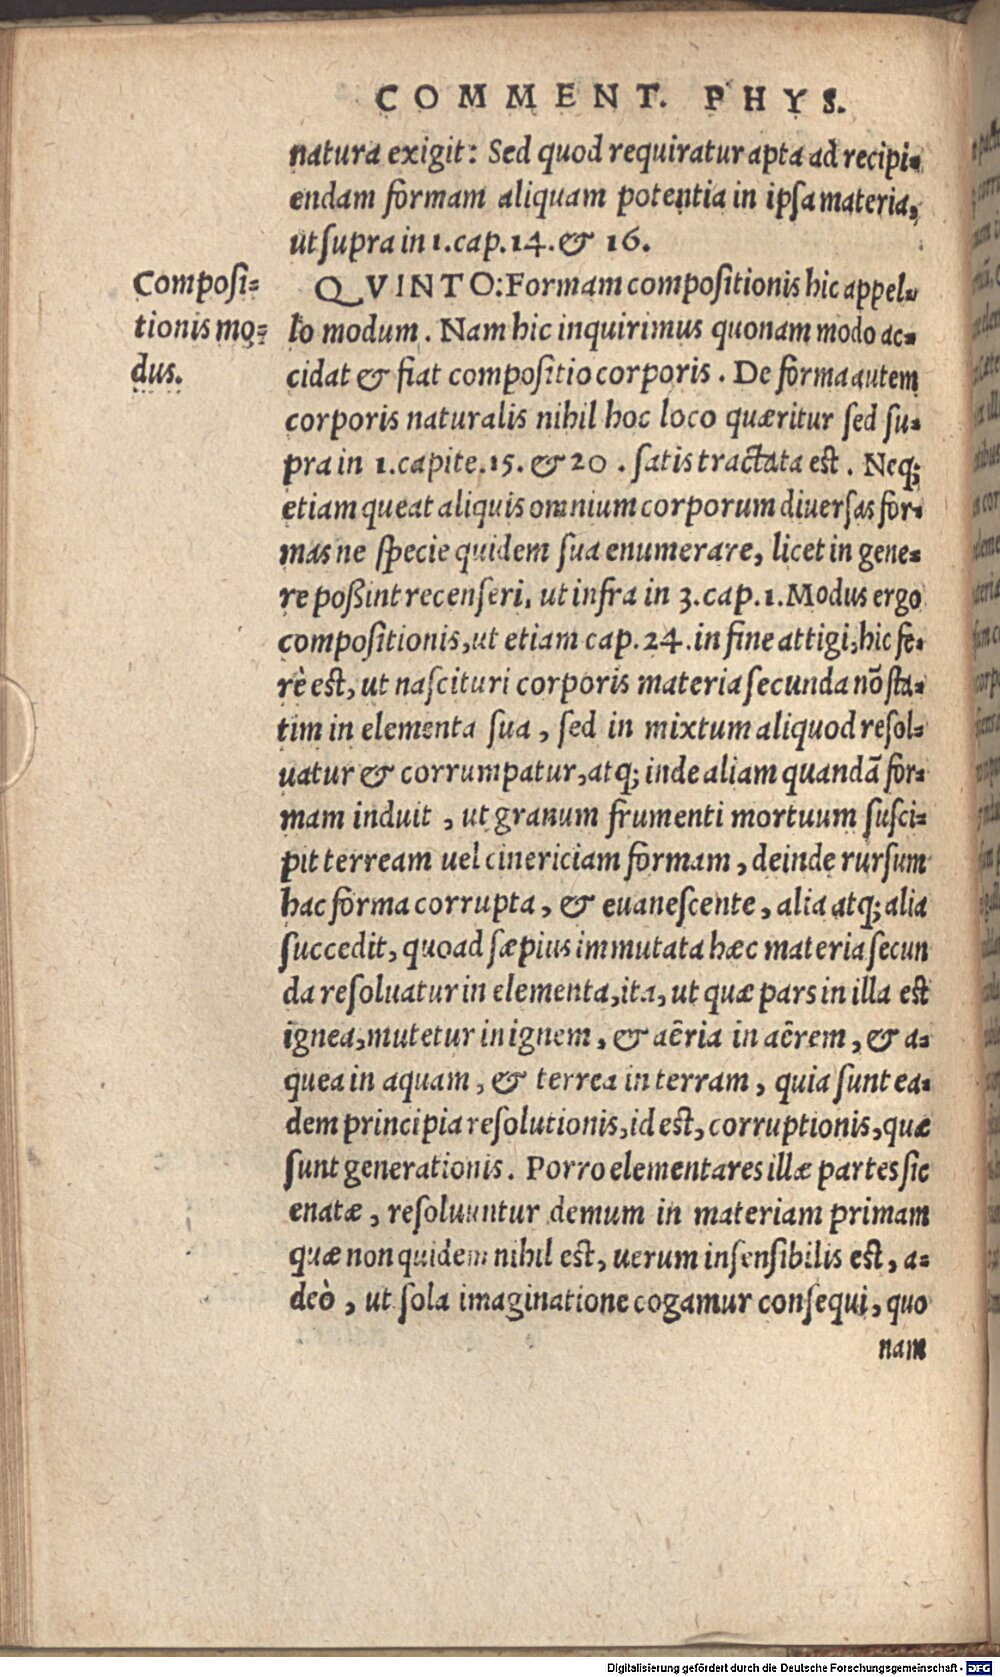 COMMENT. PHYS.
natura exigit: Sed quod requiratur apta ad recipi-
endam formam aliquam potentia in ipsa materia,
ut supra in 1. cap. 14. & 16.
Composi-
tionis mo-
dus.
QVINTO: Formam compositionis hic appel-
lo modum. Nam hic inquirimus quonam modo ac-
cidat & fiat compositio corporis. De forma autem
corporis naturalis nihil hoc loco quæritur sed su-
pra in 1. capite. 15. & 20. satis tractata est. Neq;
etiam queat aliquis omnium corporum diuersas for-
mas ne specie quidem sua enumerare, licet in gene-
re poßint recenseri, ut infra in 3. cap. 1. Modus ergo
compositionis, ut etiam cap. 24. in fine attigi, hic fe-
rè est, ut nascituri corporis materia secunda nõ sta-
tim in elementa sua, sed in mixtum aliquod resol-
uatur & corrumpatur, atq; inde aliam quandã for-
mam induit, ut granum frumenti mortuum susci-
pit terream uel cinericiam formam, deinde rursum
hac forma corrupta, & euanescente, alia atq; alia
succedit, quoad sæpius immutata hæc materia secun
da resoluatur in elementa, ita, ut quæ pars in illa est
ignea, mutetur in ignem, & aëria in aërem, & a-
quea in aquam, & terrea in terram, quia sunt ea-
dem principia resolutionis, id est, corruptionis, quæ
sunt generationis. Porro elementares illæ partes sic
enatæ, resoluuntur demum in materiam primam
quæ non quidem nihil est, uerum insensibilis est, a-
deò, ut sola imaginatione cogamur consequi, quo
nam
Digitalisierung gefördert durch die Deutsche Forschungsgemeinschaft - DFG